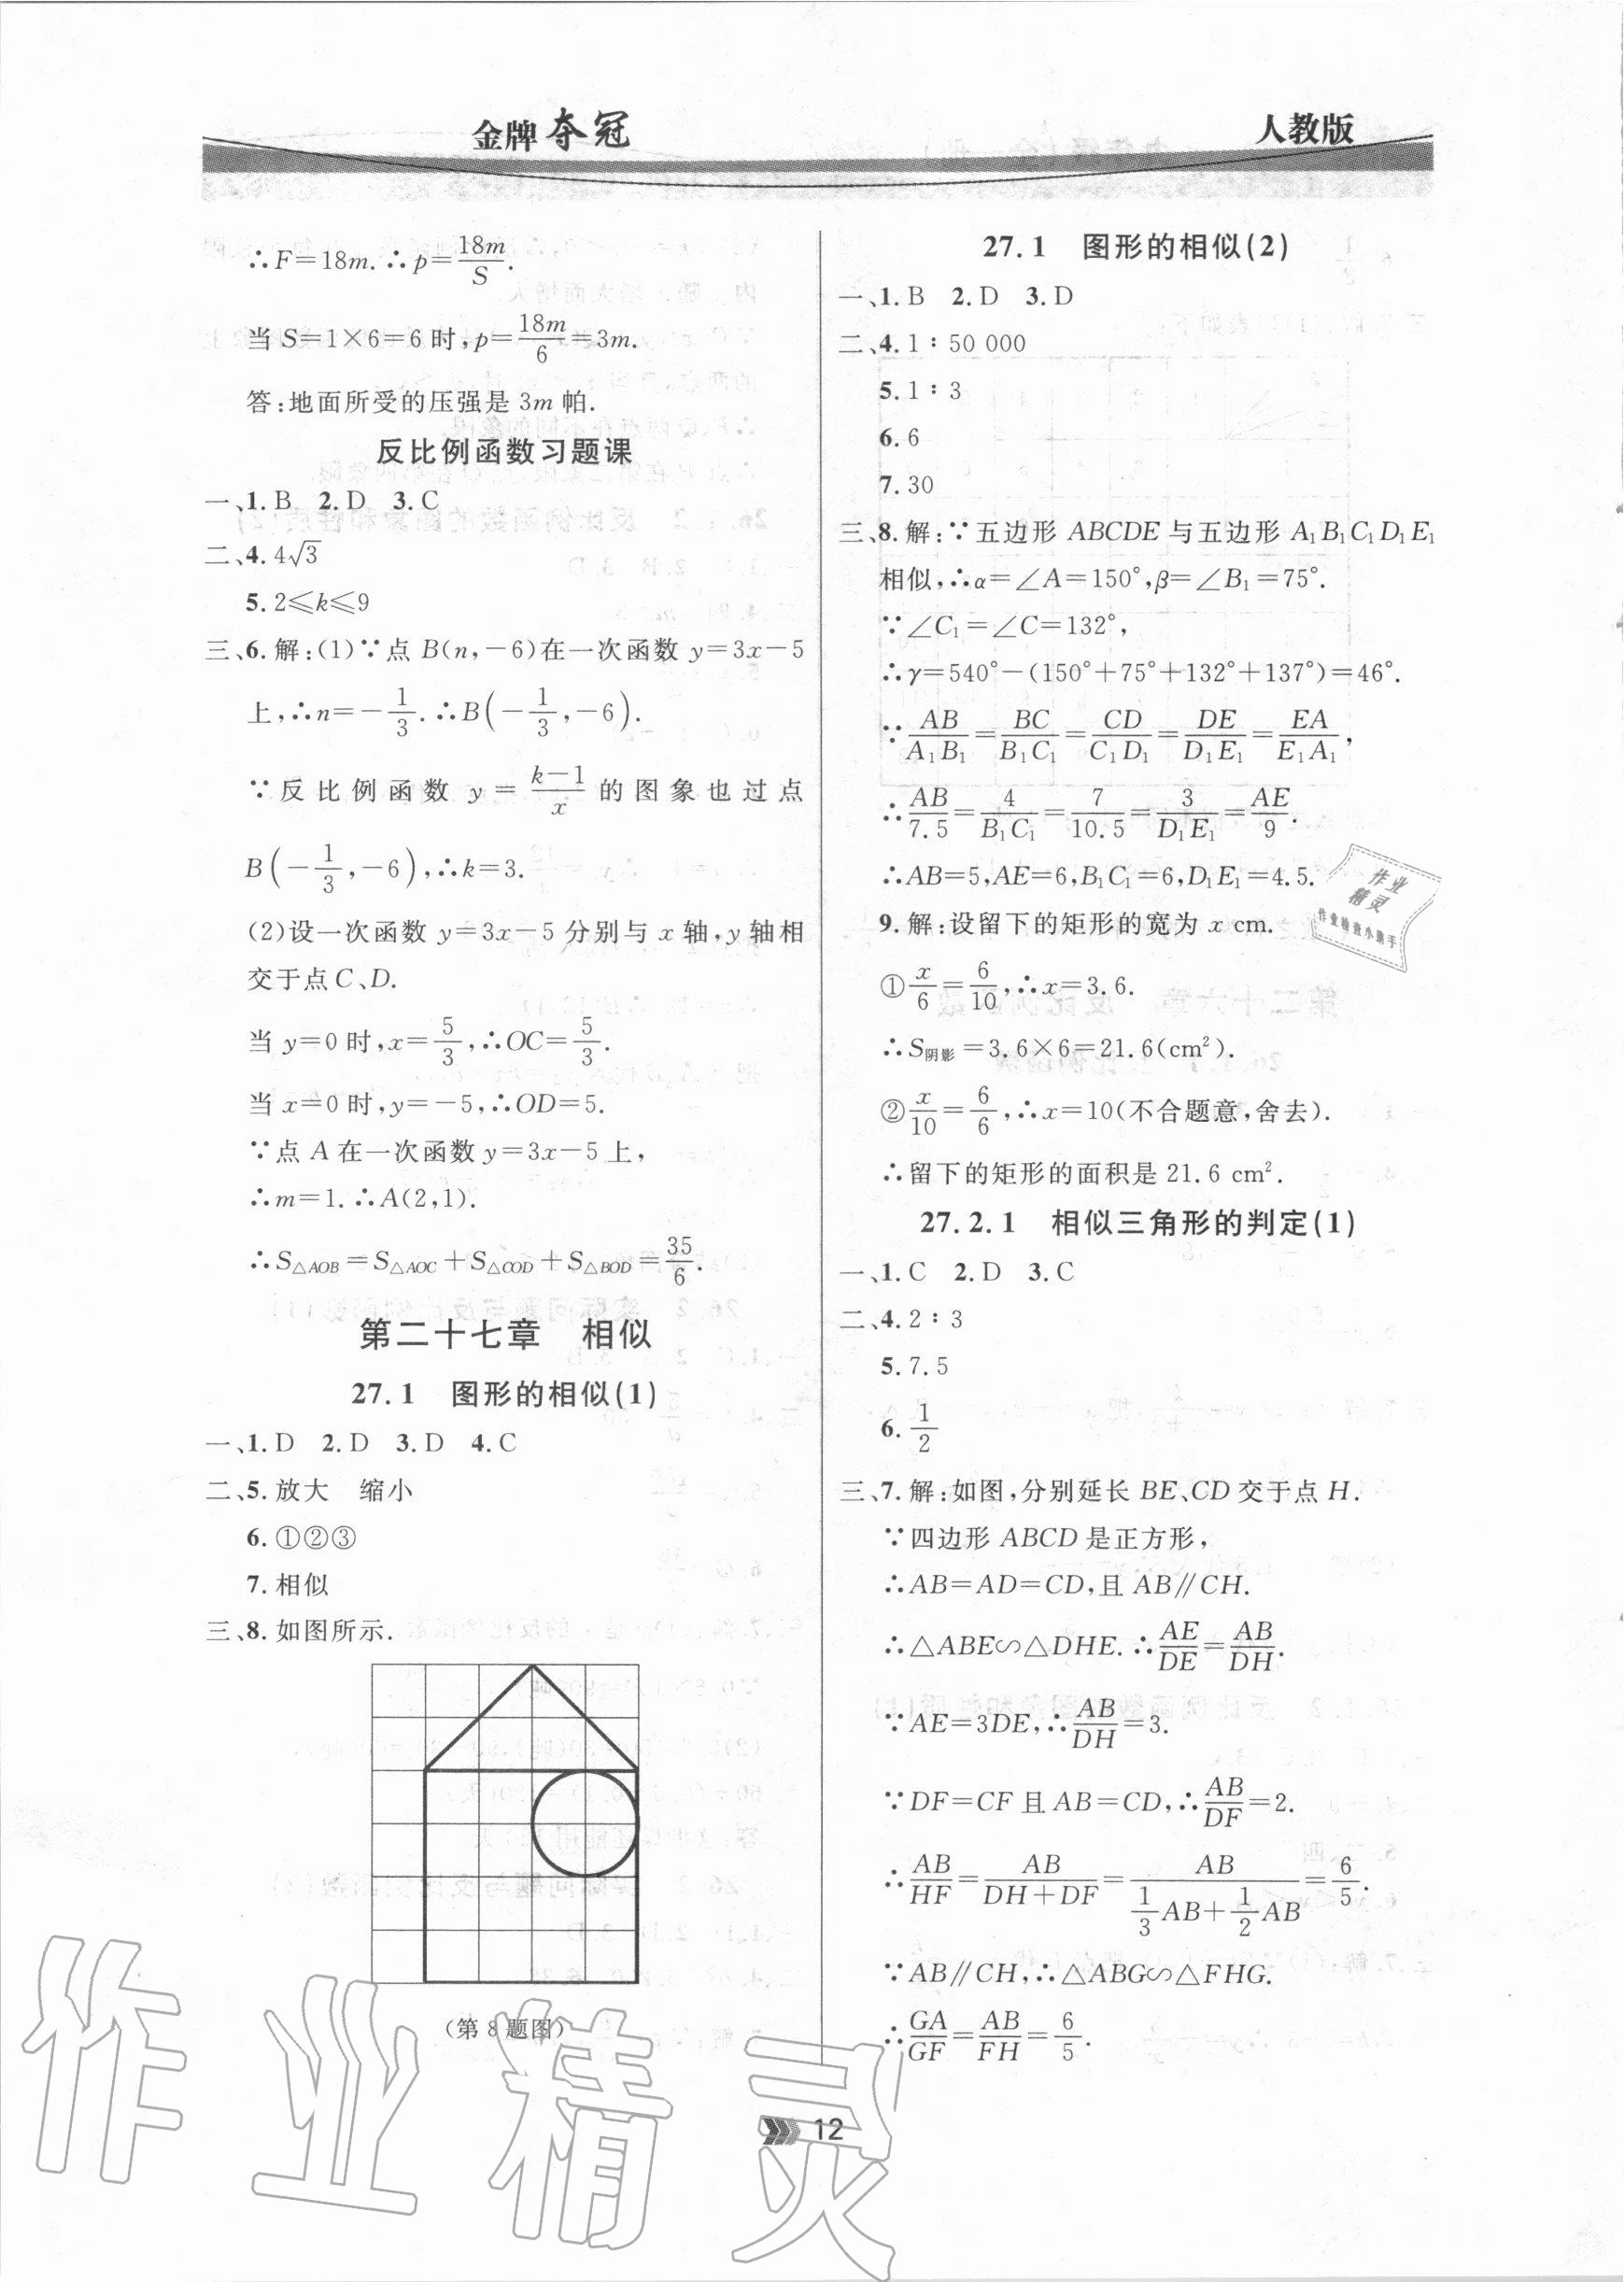 金牌夺冠
人教版
∴F=18m.∴p=18m/S.
当 S=1×6=6 时,p=18m/6=3m.
答:地面所受的压强是 3m 帕.
反比例函数习题课
一、1.B 2.D 3.C
二、4.4√3
5.2≤k≤9
三、6.解:(1)∵点 B(n,-6)在一次函数 y=3x-5
上,∴n=-1/3.∴B(-1/3,-6).
∵反比例函数 y=(k-1)/x 的图象也过点
B(-1/3,-6),∴k=3.
(2)设一次函数 y=3x-5 分别与 x 轴,y 轴相
交于点 C、D.
当 y=0 时,x=5/3,∴OC=5/3.
当 x=0 时,y=-5,∴OD=5.
∵点 A 在一次函数 y=3x-5 上,
∴m=1.∴A(2,1).
∴S△AOB=S△AOC+S△COD+S△BOD=35/6.
第二十七章 相似
27.1 图形的相似(1)
一、1.D 2.D 3.D 4.C
二、5.放大 缩小
6.①②③
7.相似
三、8.如图所示.
(第 8 题图)
27.1 图形的相似(2)
一、1.B 2.D 3.D
二、4.1∶50 000
5.1∶3
6.6
7.30
三、8.解:∵五边形 ABCDE 与五边形 A₁B₁C₁D₁E₁
相似,∴α=∠A=150°,β=∠B₁=75°.
∵∠C₁=∠C=132°,
∴γ=540°-(150°+75°+132°+137°)=46°.
∵AB/A₁B₁=BC/B₁C₁=CD/C₁D₁=DE/D₁E₁=EA/E₁A₁,
∴AB/7.5=4/B₁C₁=7/10.5=3/D₁E₁=AE/9.
∴AB=5,AE=6,B₁C₁=6,D₁E₁=4.5.
9.解:设留下的矩形的宽为 x cm.
①x/6=6/10,∴x=3.6.
∴S阴影=3.6×6=21.6(cm²).
②x/10=6/6,∴x=10(不合题意,舍去).
∴留下的矩形的面积是 21.6 cm².
27.2.1 相似三角形的判定(1)
一、1.C 2.D 3.C
二、4.2∶3
5.7.5
6.1/2
三、7.解:如图,分别延长 BE、CD 交于点 H.
∵四边形 ABCD 是正方形,
∴AB=AD=CD,且 AB∥CH.
∴△ABE∽△DHE.∴AE/DE=AB/DH.
∵AE=3DE,∴AB/DH=3.
∵DF=CF 且 AB=CD,∴AB/DF=2.
∴AB/HF=AB/(DH+DF)=AB/(1/3AB+1/2AB)=6/5.
∵AB∥CH,∴△ABG∽△FHG.
∴GA/GF=AB/FH=6/5.
作业
精灵
作业检查小助手
作业精灵
12